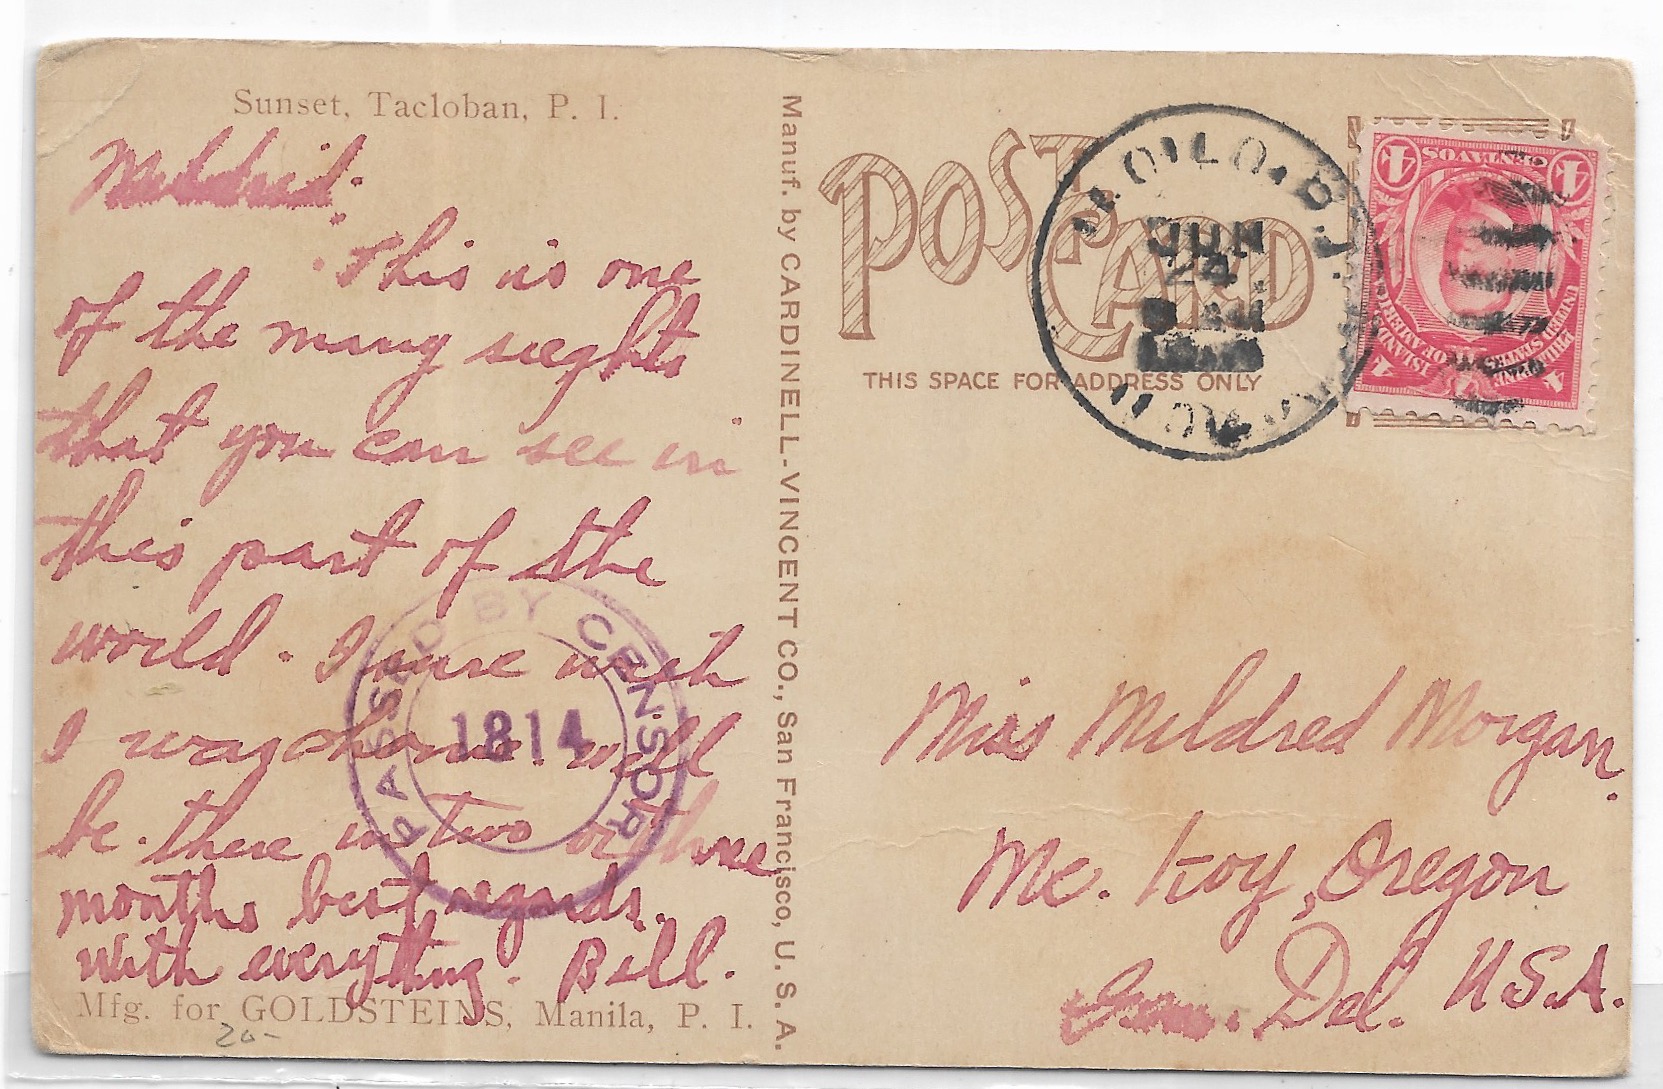 Sunset, Tacloban, P. I.
Mildred:
This is one
of the many sieghts
that you can see in
this part of the
world. I sure wish
I was home. will
be there in two or three
months best regards.
With everything. Bill.
Mfg. for GOLDSTEINS, Manila, P. I.
20-
PASSED BY CENSOR
1814
Manuf. by CARDINELL-VINCENT CO., San Francisco, U. S. A.
POST CARD
THIS SPACE FOR ADDRESS ONLY
ILOILO, P. I.
JUN
24
4 CENTAVOS 4
PHILIPPINE ISLANDS
UNITED STATES OF AMERICA
4 4
Miss Mildred Morgan.
Mc. Koy, Oregon
Gen. Del. U.S.A.